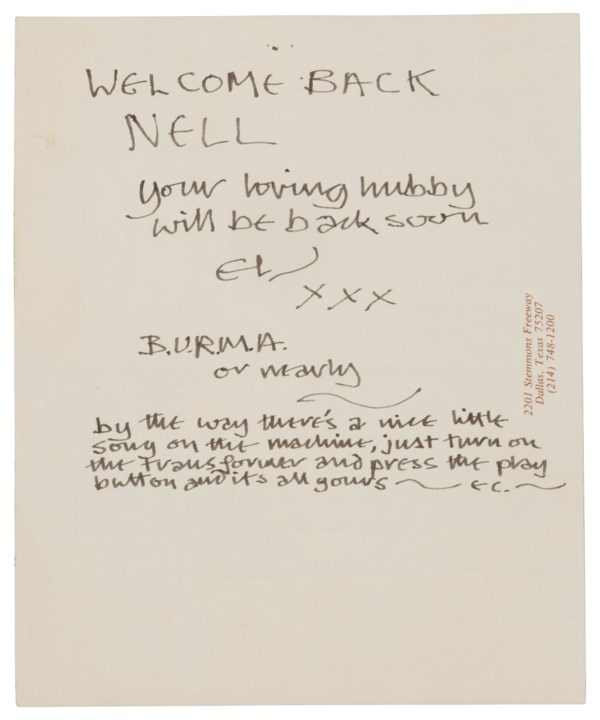 WELCOME BACK
NELL
your loving hubby
will be back soon
El
xxx
B.U.R.M.A.
or nearly
by the way there's a nice little
song on the machine, just turn on
the transformer and press the play
button and its all yours — E.C. —
2201 Stemmons Freeway
Dallas, Texas 75207
(214) 748-1200